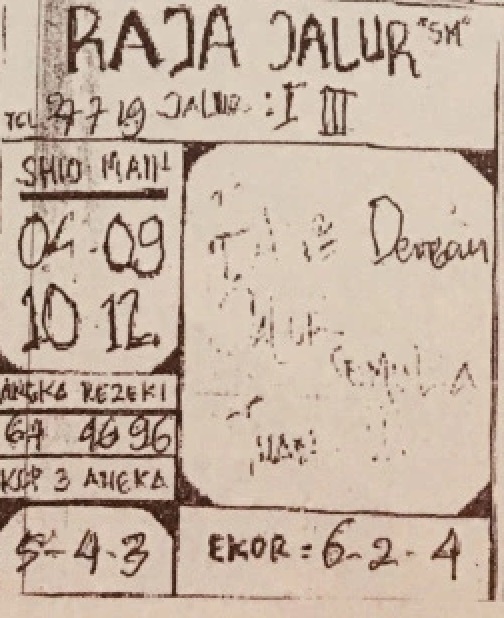 RAJA JALUR "SM"
JALUR : I III
SHIO MAIN
04 - 09
10 12
ANGKA REZEKI
64 46 96
KOP 3 ANGKA
5 - 4 - 3
Dengan
JALUR
SEMULA
EKOR = 6 - 2 - 4